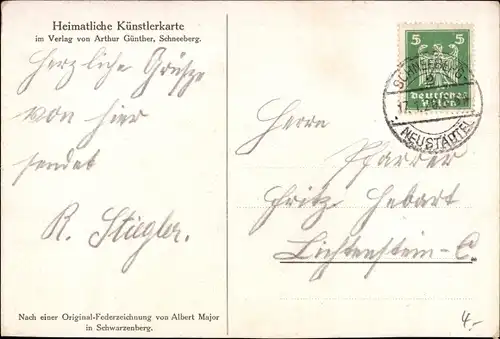 Heimatliche Künstlerkarte
im Verlag von Arthur Günther, Schneeberg.
Herzliche Grüße
von hier
sendet
R. Stiegler.
Nach einer Original-Federzeichnung von Albert Major
in Schwarzenberg.
5 5
Deutsches
Reich
SCHNEEBERG-
NEUSTÄDTEL
Herrn
Pfarrer
Fritz Hebart
Lichtenstein-C.
4.-